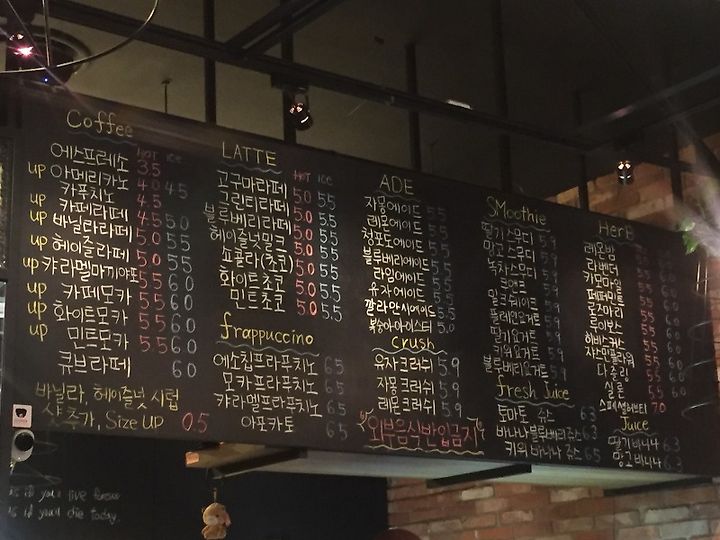 Coffee
HOT ICE
에스프레소 3.5
up 아메리카노 4.0 4.5
카푸치노 4.5
up 카페라떼 4.5 5.0
up 바닐라라떼 5.0 5.5
up 헤이즐라떼 5.0 5.5
up 캬라멜마끼야또 5.5 6.0
up 카페모카 5.5 6.0
up 화이트모카 5.5 6.0
up 민트모카 5.5 6.0
큐브라떼 6.0
바닐라, 헤이즐넛 시럽
샷추가, Size UP 0.5
LATTE
HOT ICE
고구마라떼 5.0 5.5
그린티라떼 5.0 5.5
블루베리라떼 5.0 5.5
헤이즐넛밀크 5.0 5.5
핫콜라(초코) 5.0 5.5
화이트초코 5.0 5.5
민트초코 5.0 5.5
frappuccino
에소칩프라푸치노 6.5
모카프라푸치노 6.5
캬라멜프라푸치노 6.5
아포카토 6.5
ADE
자몽에이드 5.5
레몬에이드 5.5
청포도에이드 5.5
블루베리에이드 5.5
라임에이드 5.5
유자에이드 5.5
깔라만시에이드 5.5
복숭아아이스티 5.0
Crush
유자크러쉬 5.9
자몽크러쉬 5.9
레몬크러쉬 5.9
외부음식반입금지
SMoothie
딸기스무디 5.9
망고스무디 5.9
녹차스무디 5.9
밀크쉐이크 5.9
플레인요거트 5.9
딸기요거트 5.9
키위요거트 5.9
블루베리요거트 5.9
fresh Juice
토마토 쥬스 6.3
바나나블루베리쥬스 6.3
키위 바나나 쥬스 6.5
HerB
레몬밤 5.5 6.0
라벤더 5.5 6.0
카모마일 5.5 6.0
페퍼민트 5.5 6.0
로즈마리 5.5 6.0
루이보스 5.5 6.0
히비스커스 5.5 6.0
쟈스민플라워 5.5 6.0
다즐링 5.5 6.0
실론 5.5 6.0
스페셜허브티 7.0
Juice
딸기바나나 6.3
망고바나나 6.3
as if you'll live forever
as if you'll die today.